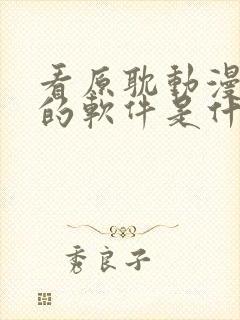 看原耽動漫
的軟件是什
秀良子